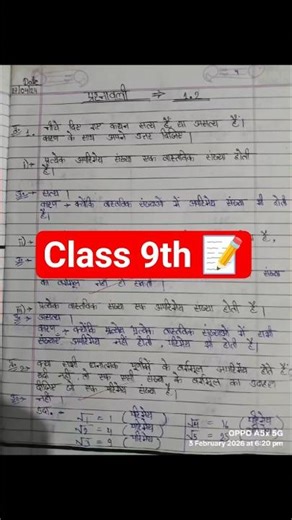 Date
प्रश्नावली ⇒ 1.2
प्र० 1. नीचे दिए गए कथन सत्य हैं या असत्य हैं।
कारण के साथ अपने उत्तर दिजिए।
i) प्रत्येक अपरिमेय संख्या एक वास्तविक संख्या होती
है।
उ० सत्य।
कारण + क्योंकि वास्तविक संख्याओं में अपरिमेय संख्या भी होती
है।
ii)
Class 9th 📝
संख्या
का वर्गमूल नहीं हो सकती।
iii) प्रत्येक वास्तविक संख्या एक अपरिमेय संख्या होती है।
उ० असत्य
कारण + क्योंकि प्रत्येक वास्तविक संख्याओं में सभी
संख्याएं अपरिमेय नहीं होती, परिमेय भी होती है।
प्र० 2. क्या सभी धनात्मक पूर्णांकों के वर्गमूल अपरिमेय होते हैं?
यदि नहीं, तो एक ऐसी संख्या के वर्गमूल का उदाहरण
दिजिए जो एक परिमेय संख्या है।
उ० नहीं।
√1 = 1 (परिमेय)
परिमेय
परिमेय
OPPO A5x 5G
3 February 2026 at 6:20 pm